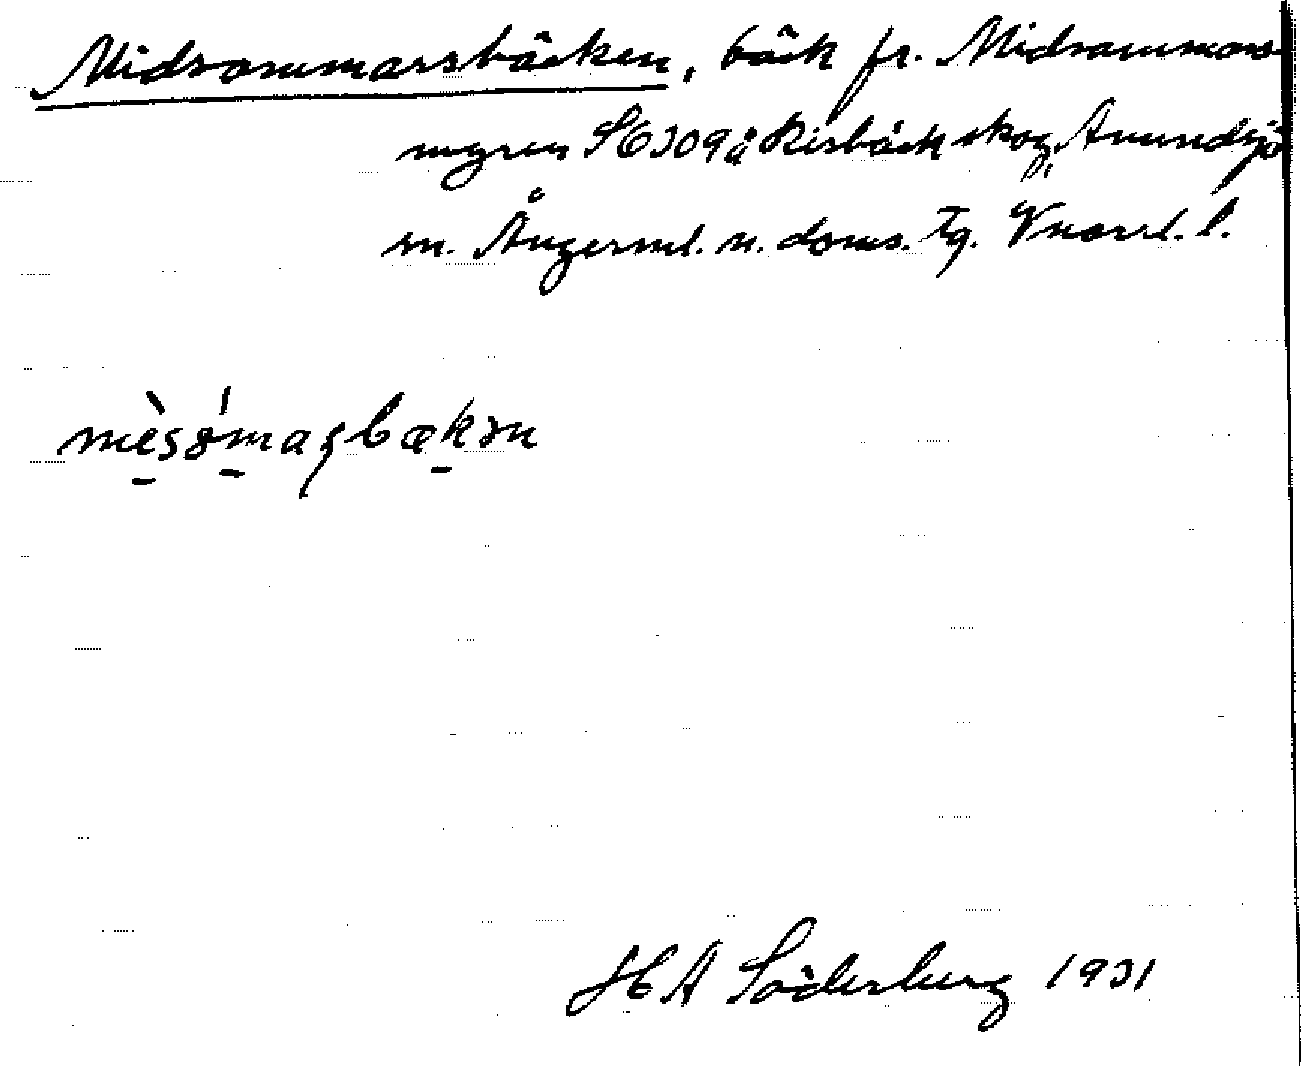 Midsommarsbäcken, bäck fr. Midsommars-
myren SO 309 å Risbäck skog, Anundsjö
sn. Ångerml. n. doms. tg. Vnorrl. l.
mèsómaʂbækən
H A Söderberg 1931